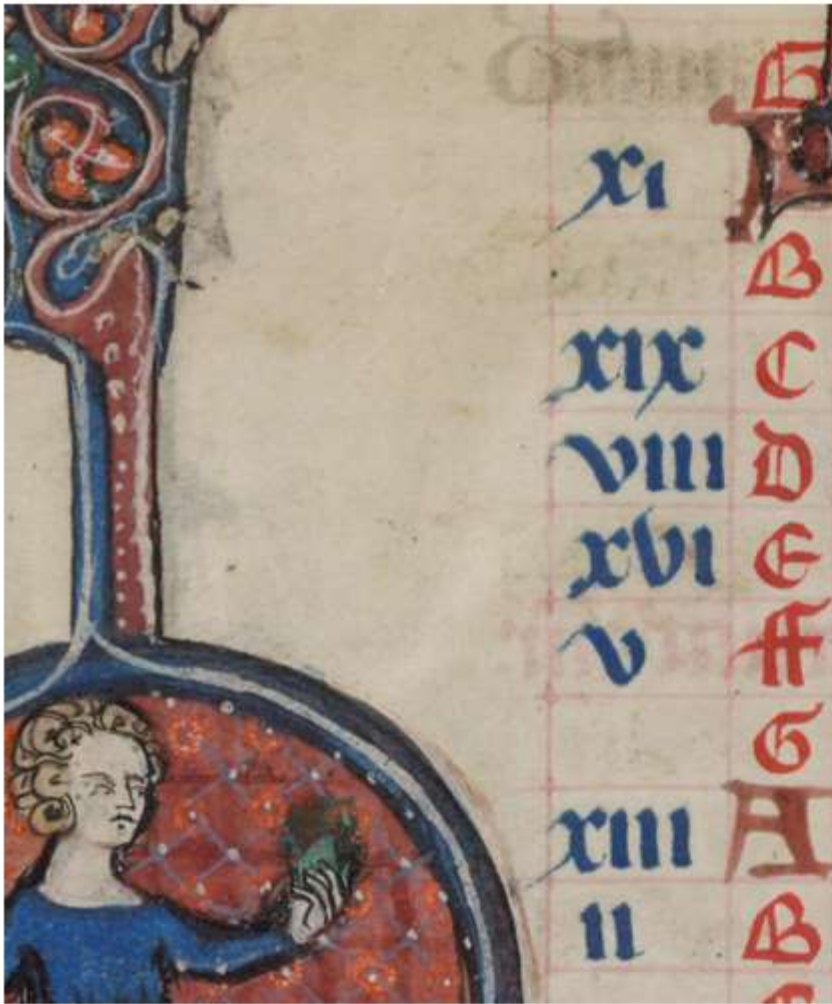 G
xi A
B
xix C
viii D
xvi E
v F
G
xiii A
ii B